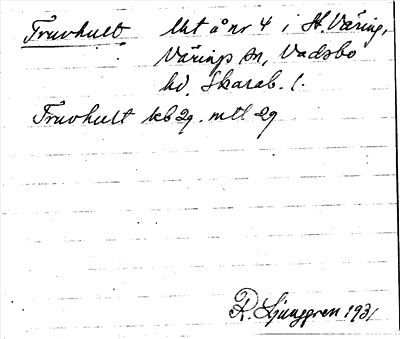 Fruvhult lht å nr 4 i St. Väring,
Värings sn, Vadsbo
hd. Skarab. l.
Fruvhult kb 29. mtl 29
R. Ljunggren 1931